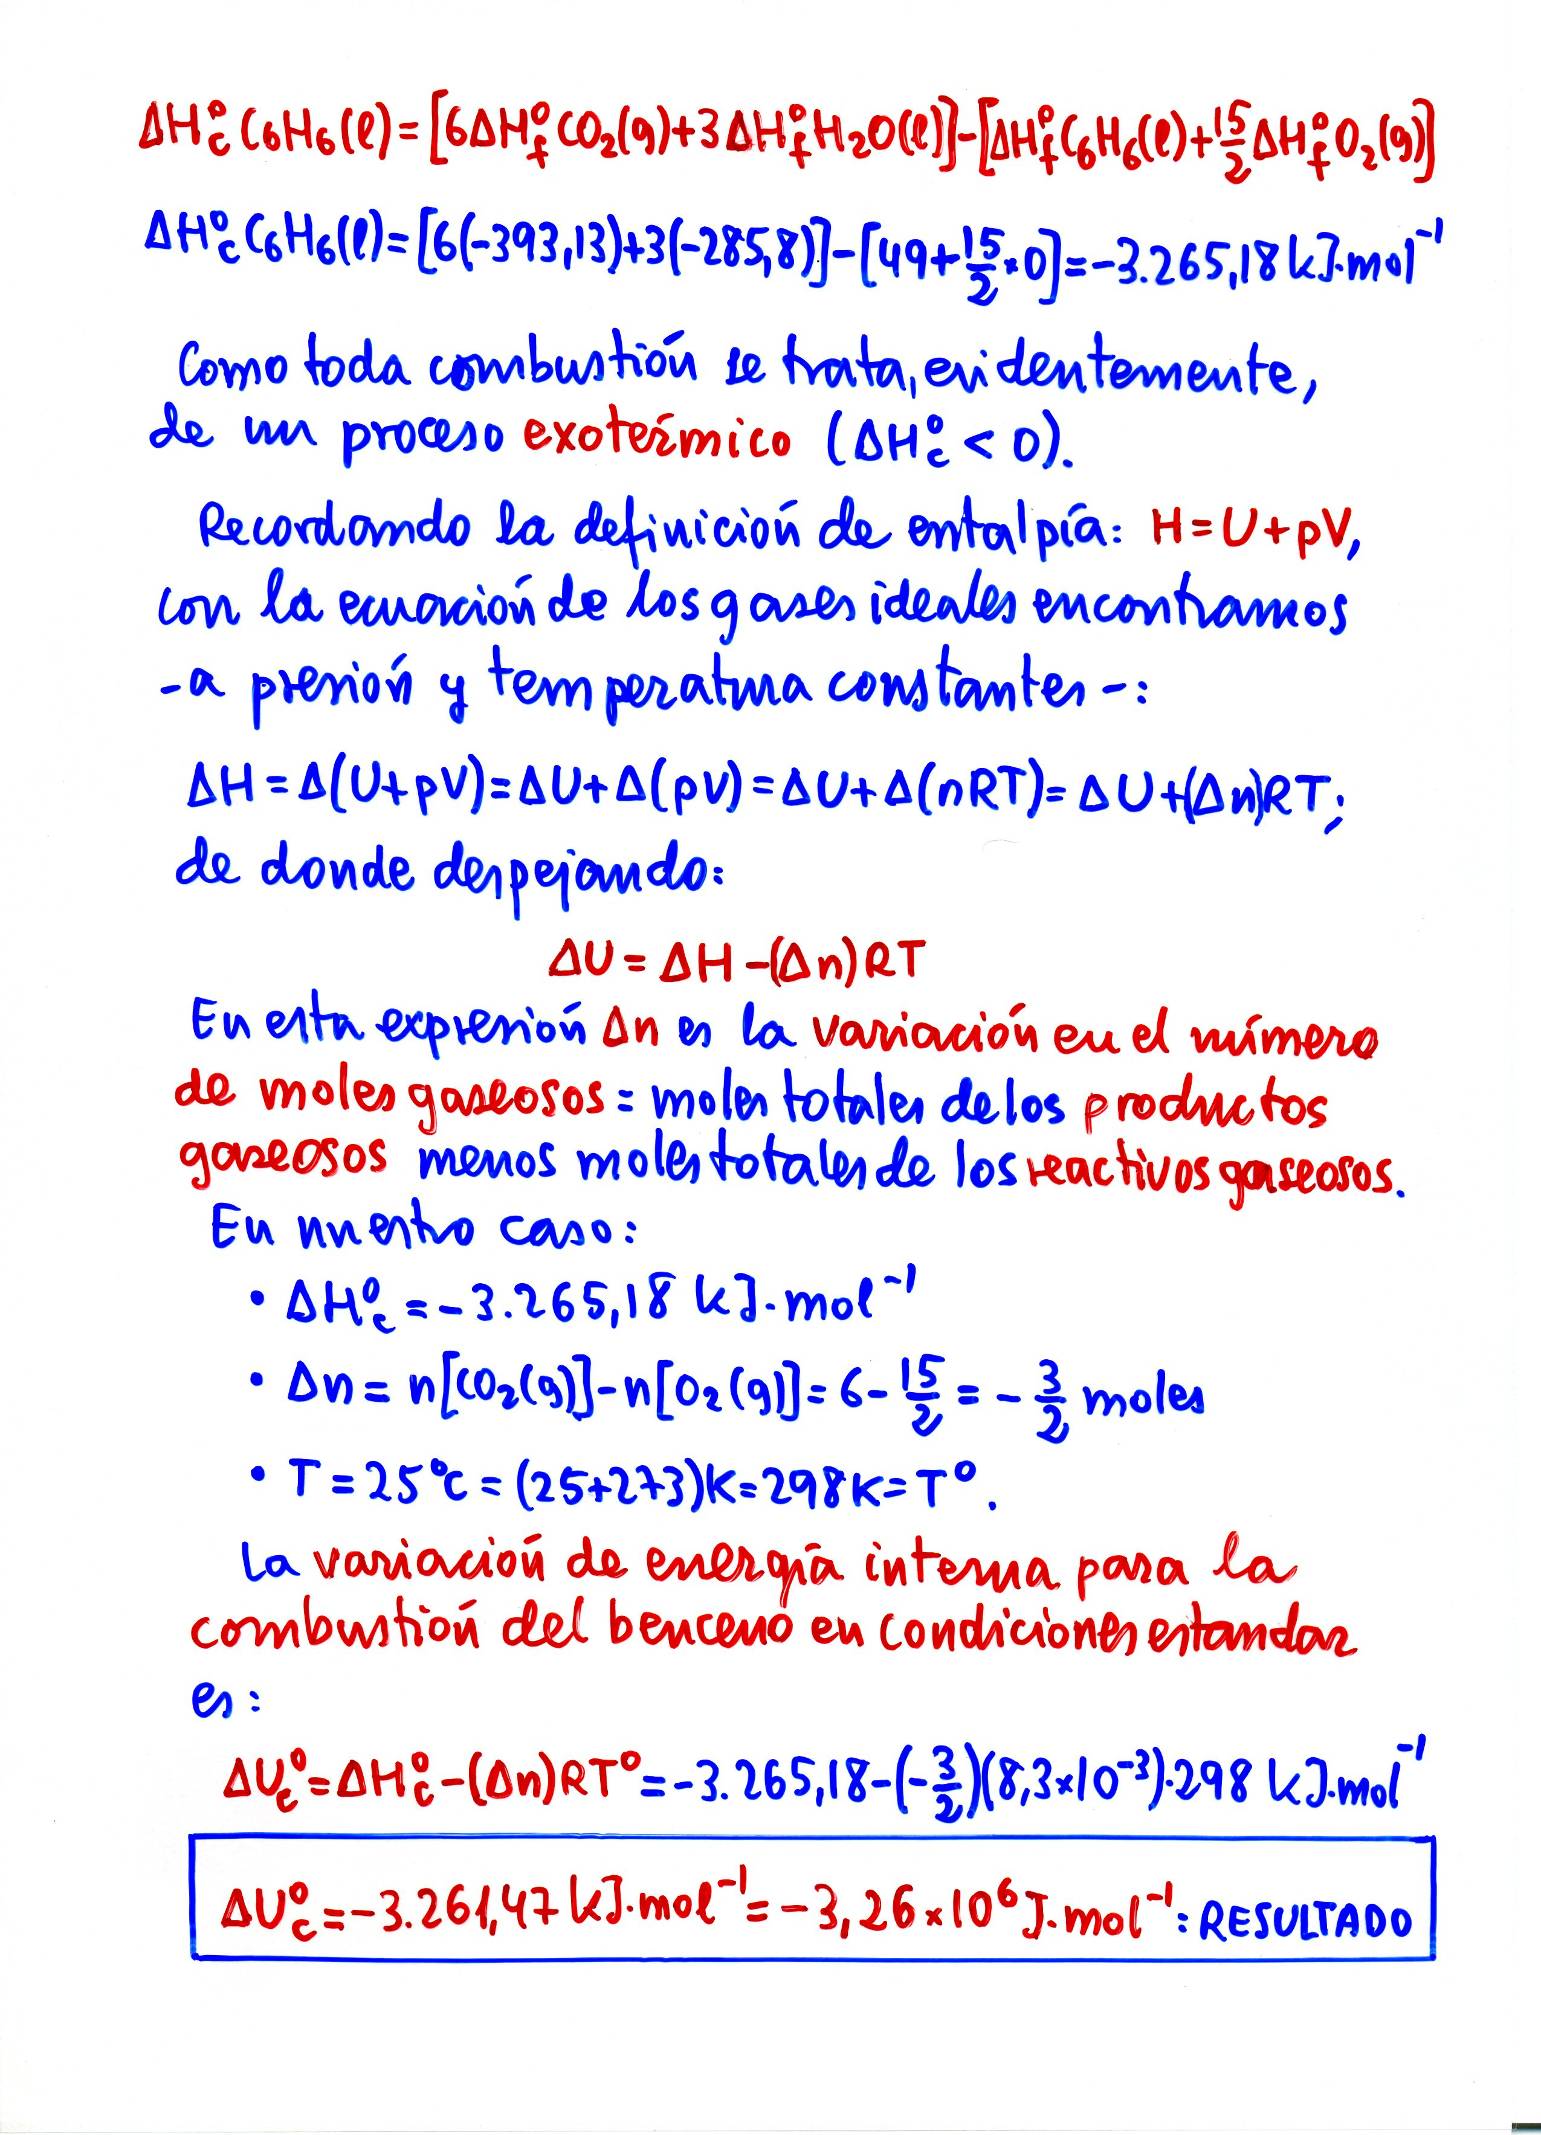 ΔH°c C6H6(l)=[6ΔH°f CO2(g)+3ΔH°f H2O(l)]-[ΔH°f C6H6(l)+15/2 ΔH°f O2(g)]
ΔH°c C6H6(l)=[6(-393,13)+3(-285,8)]-[49+15/2×0]=-3.265,18 kJ·mol⁻¹
Como toda combustión se trata, evidentemente,
de un proceso exotérmico (ΔH°c < 0).
Recordando la definición de entalpía: H=U+pV,
con la ecuación de los gases ideales encontramos
-a presión y temperatura constantes-:
ΔH=Δ(U+pV)=ΔU+Δ(pV)=ΔU+Δ(nRT)=ΔU+(Δn)RT;
de donde despejando:
ΔU=ΔH-(Δn)RT
En esta expresión Δn es la variación en el número
de moles gaseosos = moles totales de los productos
gaseosos menos moles totales de los reactivos gaseosos.
En nuestro caso:
• ΔH°c=-3.265,18 kJ·mol⁻¹
• Δn=n[CO2(g)]-n[O2(g)]=6-15/2=-3/2 moles
• T=25°C=(25+273)K=298K=T°.
La variación de energía interna para la
combustión del benceno en condiciones estandar
es:
ΔU°c=ΔH°c-(Δn)RT°=-3.265,18-(-3/2)(8,3×10⁻³)·298 kJ·mol⁻¹
ΔU°c=-3.261,47 kJ·mol⁻¹=-3,26×10⁶ J·mol⁻¹: RESULTADO